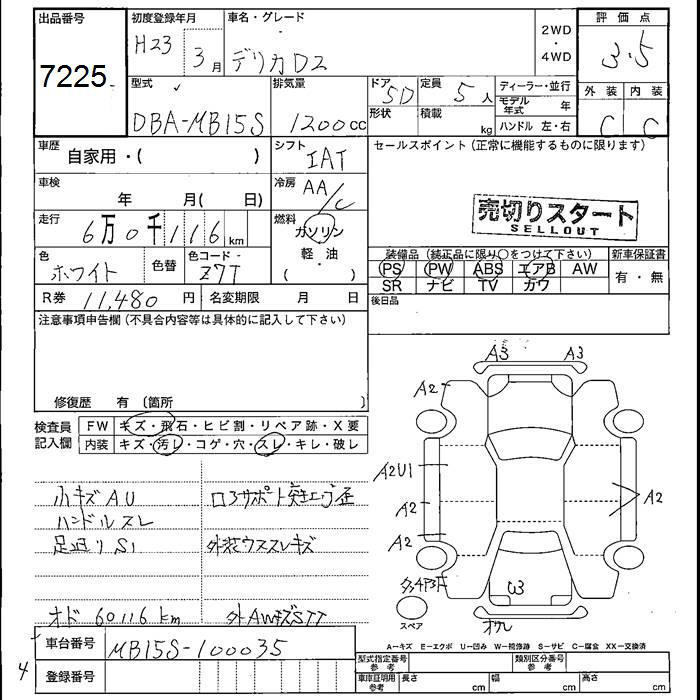 出品番号
7225
初度登録年月
H23 3月
車名・グレード
デリカD2
2WD
・
4WD
評価点
3.5
外装 内装
C C
型式
DBA-MB15S
排気量
1200cc
ドア 5D
形状
定員 5人
積載 kg
ディーラー・並行
モデル年式 年
ハンドル 左・右
車歴 自家用・( )
シフト IAT
車検 年 月( 日)
冷房 AA/C
走行 6万0千116km
燃料 ガソリン
軽・油
( )
色 ホワイト
色替
色コード Z7T
R券 11,480円
名変期限 月 日
セールスポイント(正常に機能するものに限ります)
売切りスタート
SELLOUT
装備品(純正品に限り○をつけて下さい)
PS PW ABS エアB AW
SR ナビ TV カワ
新車保証書
有・無
後日品
注意事項申告欄(不具合内容等は具体的に記入して下さい)
修復歴 有(箇所 )
検査員記入欄
FW キズ・飛石・ヒビ割・リペア跡・X要
内装 キズ・汚レ・コゲ・穴・スレ・キレ・破レ
小キズAU
ハンドルスレ
足廻りS1
オド 60116km
ロアサポート突き上げ歪
外装ウススレキズ
外AWキズSTT
A3 A3
A2
A2U1
A2
A2
A2
スペア
車台番号 MB15S-100035
登録番号
4
A-キズ E-エクボ U-凹み W-補修跡 S-サビ C-腐食 XX-交換済
型式指定番号 参考
類別区分番号 参考
車庫証明用 参考
長さ cm
幅 cm
高さ cm